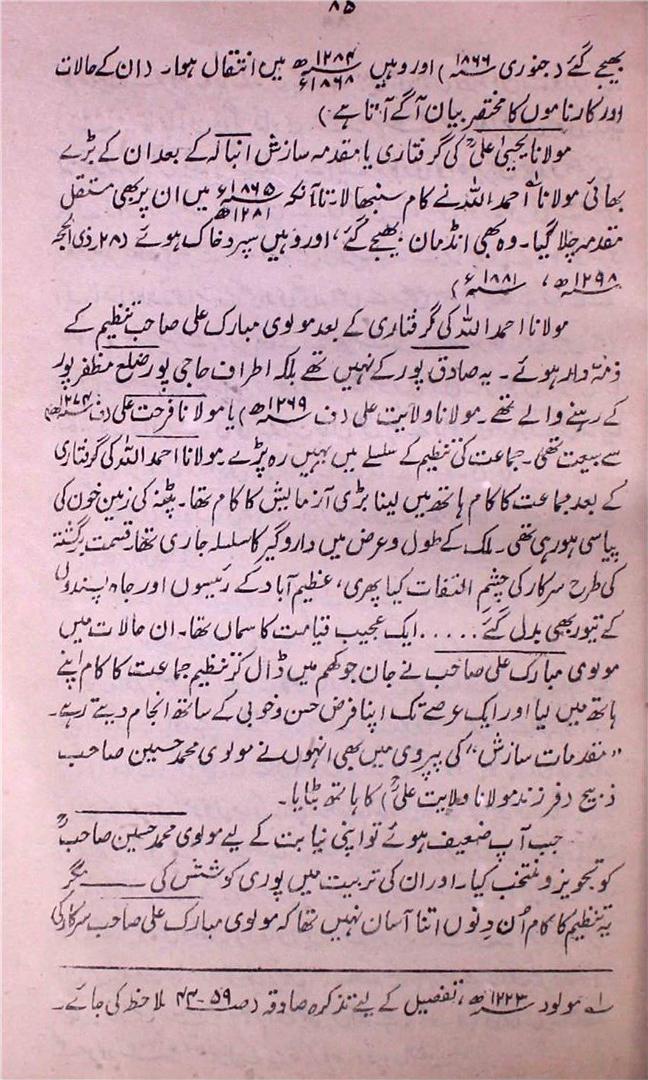 ۸۵
بھیجے گئے (جنوری ۱۸۶۶ء) اور وہیں ۱۲۸۴ھ ۱۸۶۸ء میں انتقال ہوا۔ (ان کے حالات
اور کارناموں کا مختصر بیان آگے آتا ہے۔)
مولانا یحییٰ علیؒ کی گرفتاری یا مقدمہ سازش انبالہ کے بعد ان کے بڑے
بھائی مولانا احمد اللہ نے کام سنبھالا تا آنکہ ۱۸۶۵ء ۱۲۸۱ھ میں ان پر بھی مستقل
مقدمہ چلا گیا۔ وہ بھی انڈمان بھیجے گئے، اور وہیں سپرد خاک ہوئے (۲۸ ذی الحجہ
۱۲۹۸ھ، ۱۸۸۱ء)
مولانا احمد اللہ کی گرفتاری کے بعد مولوی مبارک علی صاحب تنظیم کے
ذمہ دار ہوئے۔ یہ صادق پور کے نہیں تھے بلکہ اطراف حاجی پور ضلع مظفر پور
کے رہنے والے تھے۔ مولانا ولایت علی (ف ۱۲۶۹ھ) یا مولانا فرحت علی (ف ۱۲۷۴ھ)
سے بیعت تھی۔ جماعت کی تنظیم کے سلسلے میں یہیں رہ پڑے۔ مولانا احمد اللہ کی گرفتاری
کے بعد جماعت کا کام ہاتھ میں لینا بڑی آزمایش کا کام تھا۔ پٹنہ کی زمین خون کی
پیاسی ہو رہی تھی۔ ملک کے طول و عرض میں داروگیر کا سلسلہ جاری تھا، قسمت برگشتہ
کی طرح سرکار کی چشم التفات کیا پھری، عظیم آباد کے رئیسوں اور جاہ پسندوں
کے تیور بھی بدل گئے ..... ایک عجیب قیامت کا سماں تھا۔ ان حالات میں
مولوی مبارک علی صاحب نے جان جوکھم میں ڈال کر تنظیم جماعت کا کام اپنے
ہاتھ میں لیا اور ایک عرصے تک اپنا فرض حسن و خوبی کے ساتھ انجام دیتے رہے۔
"مقدمات سازش" کی پیروی میں بھی انہوں نے مولوی محمد حسین صاحب
ذبیح (فرزند مولانا ولایت علیؒ) کا ہاتھ بٹایا۔
جب آپ ضعیف ہوئے تو اپنی نیابت کے لیے مولوی محمد حسین صاحبؒ
کو تجویز و منتخب کیا۔ اور ان کی تربیت میں پوری کوشش کی —— مگر
یہ تنظیم کا کام اُن دنوں اتنا آسان نہیں تھا کہ مولوی مبارک علی صاحب سرکار کی
۱؎ مولود ۱۲۲۳ھ، تفصیل کے لیے تذکرہ صادقہ (ص ۵۹-۴۳ ملاحظہ کی جائے۔